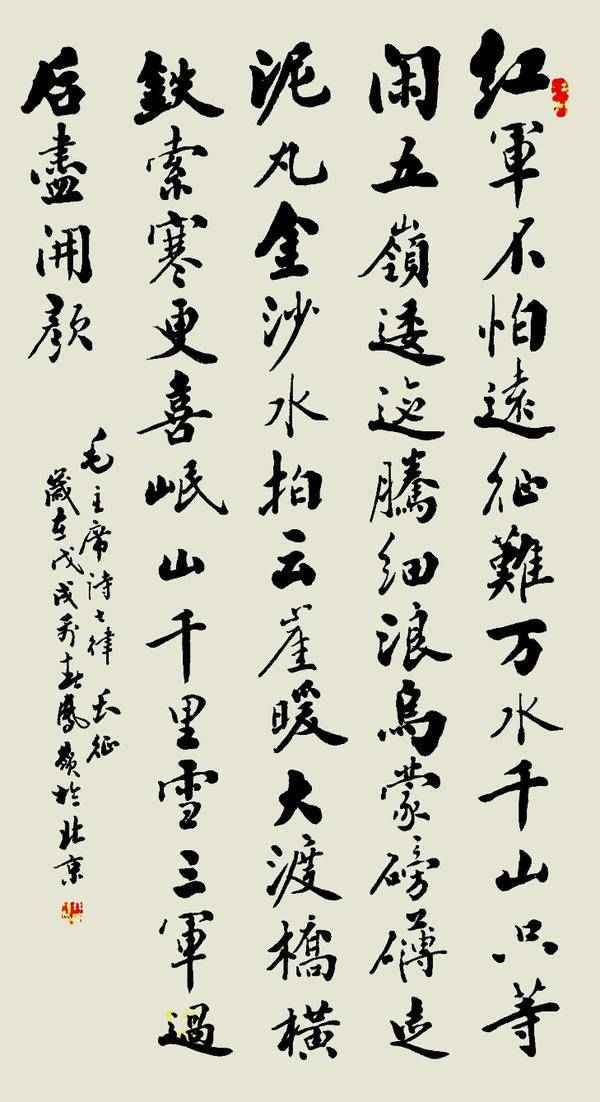 红軍不怕遠征難万水千山只等
闲五嶺逶迤騰细浪烏蒙磅礴走
泥丸金沙水拍云崖暖大渡橋橫
鉄索寒更喜岷山千里雪三軍過
后盡開颜
毛主席诗七律 长征
歲在戊戌春鳳嶺於北京